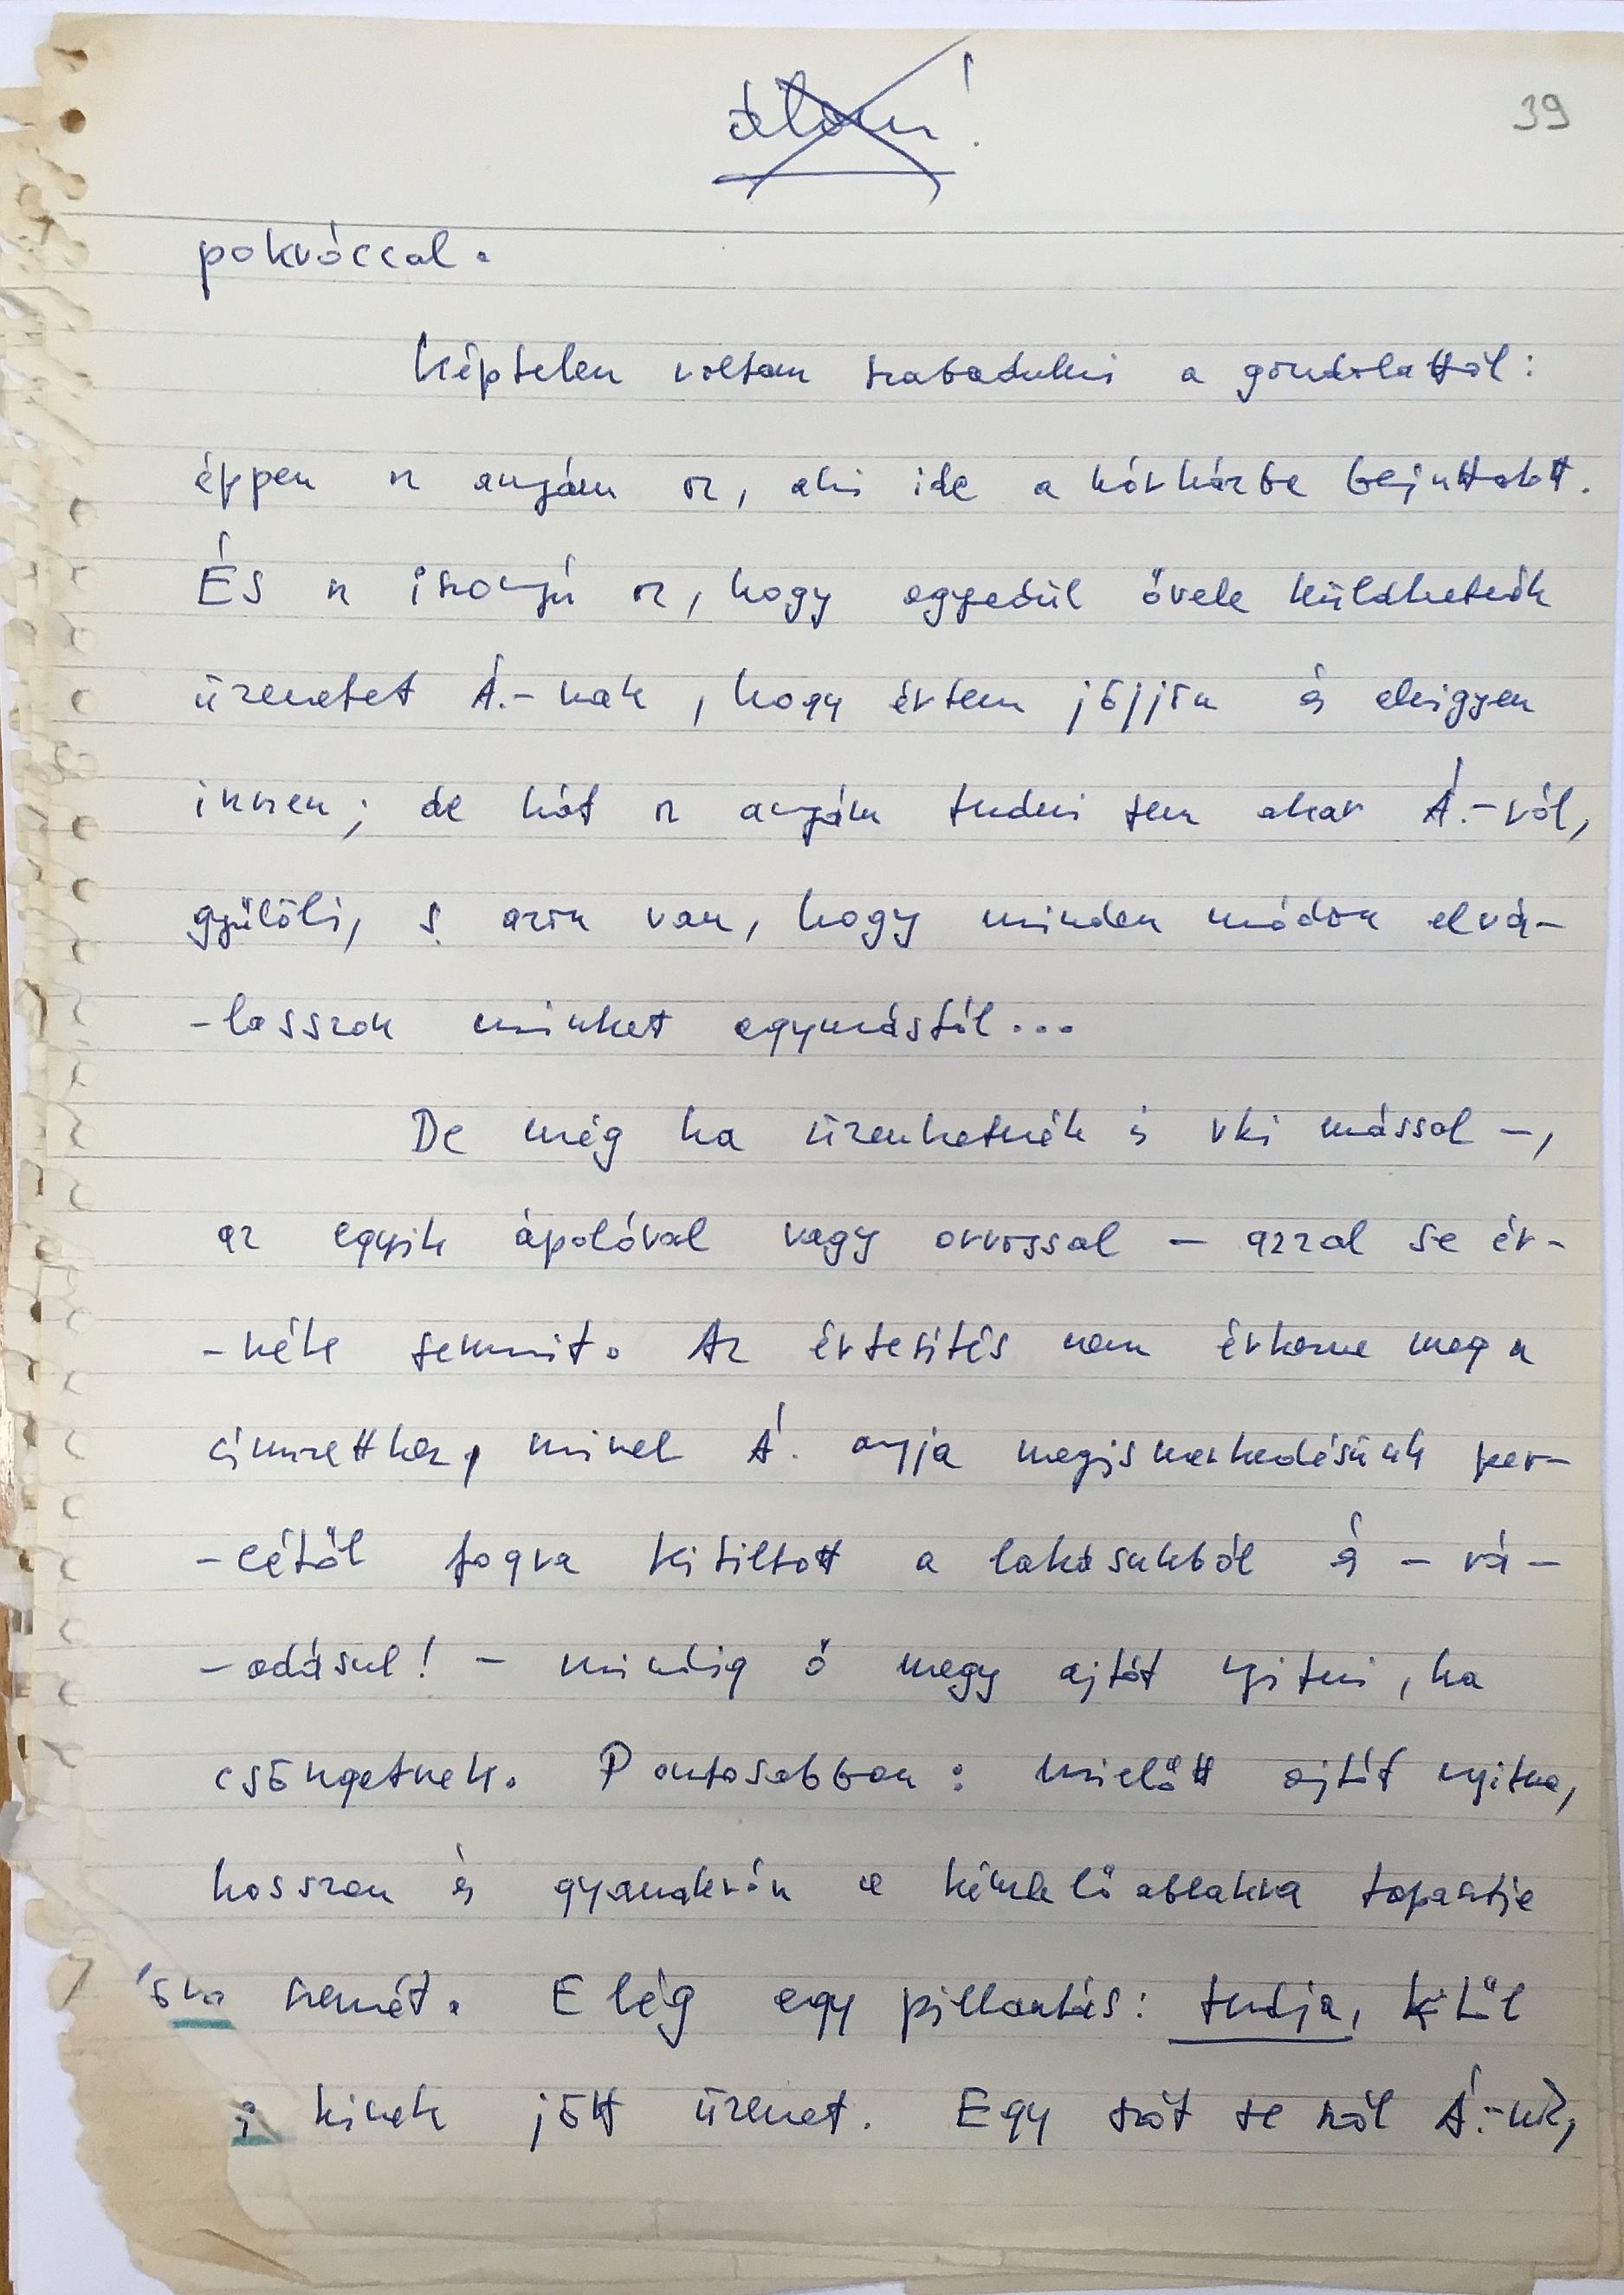 39
pokróccal.
Képtelen voltam szabadulni a gondolattól:
éppen az anyám az, aki ide a kórházba bejuttatott.
És az iszonyú az, hogy egyedül ővele küldhetnék
üzenetet Á.-nak, hogy értem jöjjön és elvigyen
innen; de hát az anyám tudni sem akar Á.-ról,
gyűlöli, s azon van, hogy minden módon elvá-
-lasszon minket egymástól...
De még ha üzenhetnék is vki mással –,
az egyik ápolóval vagy orvossal – azzal se ér-
-nék semmit. Az értesítés nem érkezne meg a
címzetthez, mivel Á. anyja megismerkedésünk per-
-cétől fogva kitiltott a lakásukból és – rá-
-adásul! – mindig ő megy ajtót nyitni, ha
csöngetnek. Pontosabban: mielőtt ajtót nyitna,
hosszan és gyanakvón a kémlelőablakra tapasztja
szemét. Elég egy pillantás: tudja, kitől
s kinek jött üzenet. Egy szót se szól Á.-nak,